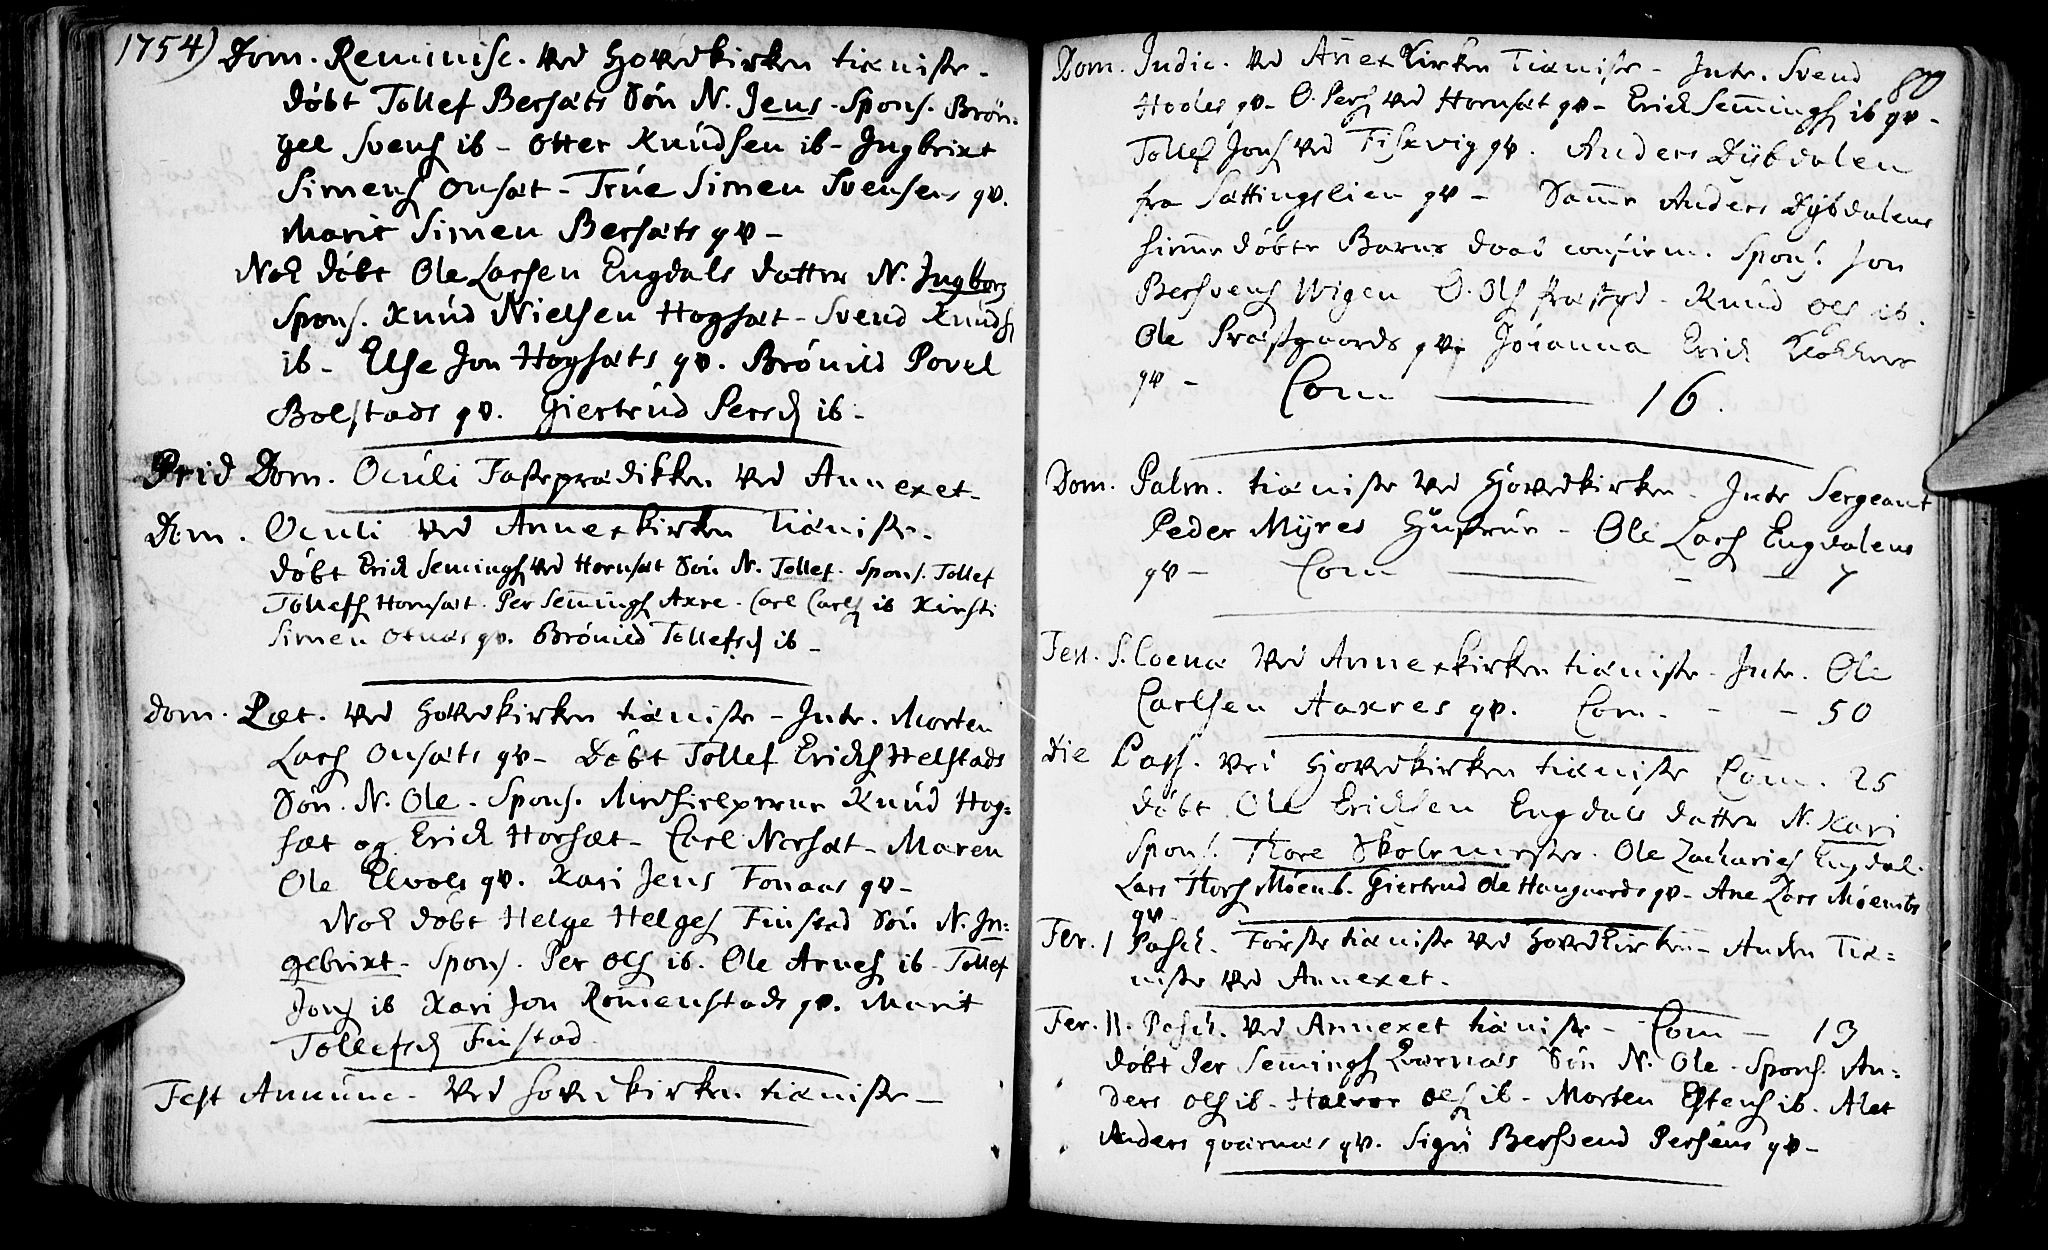 1754) Dom. Reminisc. ved Hovedkirken tiæniste.
döbt Tollef Bersæts Sön N. Jens. Spons. Brön-
gel Svens ib - Otter Knúdsen ib - Ingbrixt
Simens Onsæt - Trúe Simen Svensens qv.
Marit Simen Bersæts qv -
Nok döbt Ole Larsen Engdals datter N. Ingborg
Spons. Knúd Nielsen Hogsæt - Svend Knuds
ib - Else Jon Hogsæts qv. Brönild Povel
Bolstads qv. Giertrúd Persd ib -
Prid Dom. Oculi Fasteprædikken ved Annexet -
Dom. Oculi ved Annexkirken Tiæniste.
döbt Erick Semings ved Hornsæt Sön N. Tollef. Spons. Tollef
Tollefs Hornsæt. Per Semings Axre. Carl Carls ib Kirsti
Simen Otnæs qv. Brönild Tollefsd ib -
Dom. Læt. ved Hovedkirken tiæniste - Intr. Morten
Lars Onsæts qv - Döbt Tollef Ericks Helstads
Sön. N. Ole. Spons. Medhielperne Knúd Hog=
sæt og Erick Horsæt - Carl Nersæt - Maren
Ole Elvals qv. Kari Jens Fonaas qv -
Nok döbt Helge Helges Finstad Sön N. In=
gebrixt - Spons. Per Ols ib. Ole Arnes ib - Tollef
Jons ib Kari Jon Romenstads qv. Marit
Tollefsd Finstad.
Fest Annúnc. ved Hovedkirken tiæniste -
80
Dom. Judic. ved Annex Kirken Tiæniste - Intr. Svend
Hodes qv - O. Pers ved Hornsæt qv - Erick Semings ib qv -
Tollef Jons ved Fiskvig qv. Anders Dÿbdalen
fra Sættingslien qv - Samme Anders Dÿbdalens
hiemmedöbte Barns daab confirm. Spons. Jon
Bersvens Wigen O. Ols Præstgd - Knúd Ols ib.
Ole Præstgaards qv. Johanna Erick Klokkers
qv - Com — 16.
Dom. Palm. tiæniste ved Hovedkirken - Intr Sergeant
Peder Mÿres Hústrúe - Ole Lars Engdalens
qv - Com — - - 7
Fest. S. Coenæ ved Annexkirken tiæniste. Intr. Ole
Carlsen Aaxres qv. Com. - - 50
Die Pasch. ved Hovedkirken tiæniste Com. 25
döbt Ole Ericksen Engdals datter N. Kari
Spons. Thore Skolemester. Ole Zacharies Engdal.
Lars Thors Möemb. Giertrud Ole Haugaards qv - Ane Lars Möembs
qv -
Fer. 1 Pasch. Förste tiæniste ved Hovedkirken - Anden Tiæ=
niste ved Annexet.
Fer. II. Pasch. ved Annexet tiæniste - Com - 13
döbt Per Semings Qvernæs Sön N. Ole. Spons. An=
ders Ols ib. Halvor Ols ib - Morten Estens ib. Alet
Anders qværnæs qv. Sigri Bersvend Persens qv -